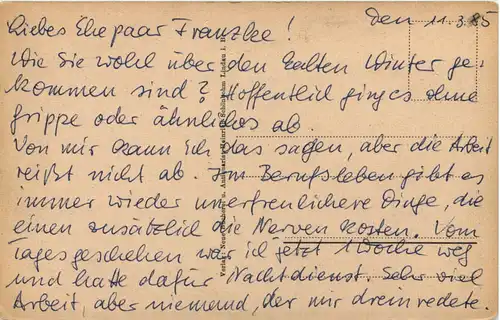 den 11.3.85
Liebes Ehepaar Franzke!
Wie Sie wohl über den kalten Winter ge-
kommen sind? Hoffentlich ging's ohne
Grippe oder ähnliches ab.
Von mir kann ich das sagen, aber die Arbeit
reißt nicht ab. Im Berufsleben gibt es
immer wieder unerfreulichere Dinge, die
einen zusätzlich die Nerven kosten. Vom
Tagesgeschehen war ich jetzt 1 Woche weg
und hatte dafür Nachtdienst. Sehr viel
Arbeit, aber niemand, der mir dreinredete.